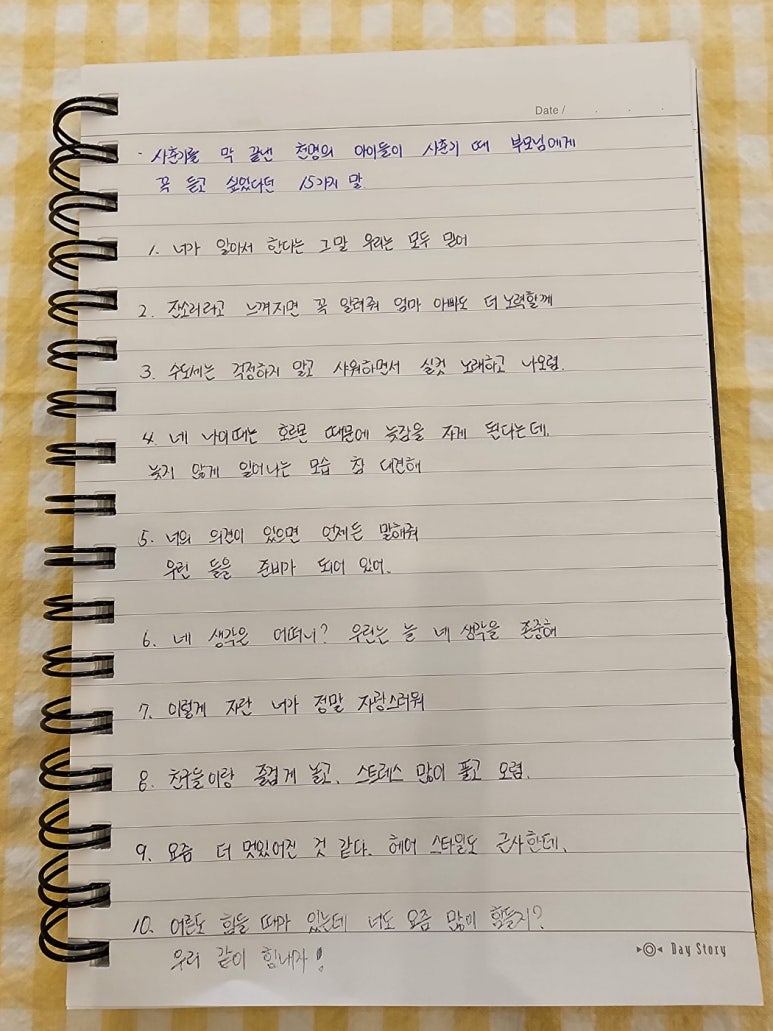 Date / . . .
· 사춘기를 막 끝낸 천명의 아이들이 사춘기 때 부모님에게
꼭 듣고 싶었다던 15가지 말
1. 너가 알아서 한다는 그말 우리는 모두 믿어
2. 잔소리라고 느껴지면 꼭 알려줘 엄마 아빠도 더 노력할께
3. 수도세는 걱정하지 말고 샤워하면서 실컷 노래하고 나오렴.
4. 네 나이때는 호르몬 때문에 늦잠을 자게 된다는데.
늦지 않게 일어나는 모습 참 대견해
5. 너의 의견이 있으면 언제든 말해줘
우린 들을 준비가 되어 있어.
6. 네 생각은 어떠니? 우린는 늘 네 생각을 존중해
7. 이렇게 자란 너가 정말 자랑스러워
8. 친구들이랑 즐겁게 놀고. 스트레스 많이 풀고 오렴.
9. 요즘 더 멋있어진 것 같다. 헤어 스타일도 근사한데.
10. 어른도 힘들 때가 있는데 너도 요즘 많이 힘들지?
우리 같이 힘내자!
Day Story